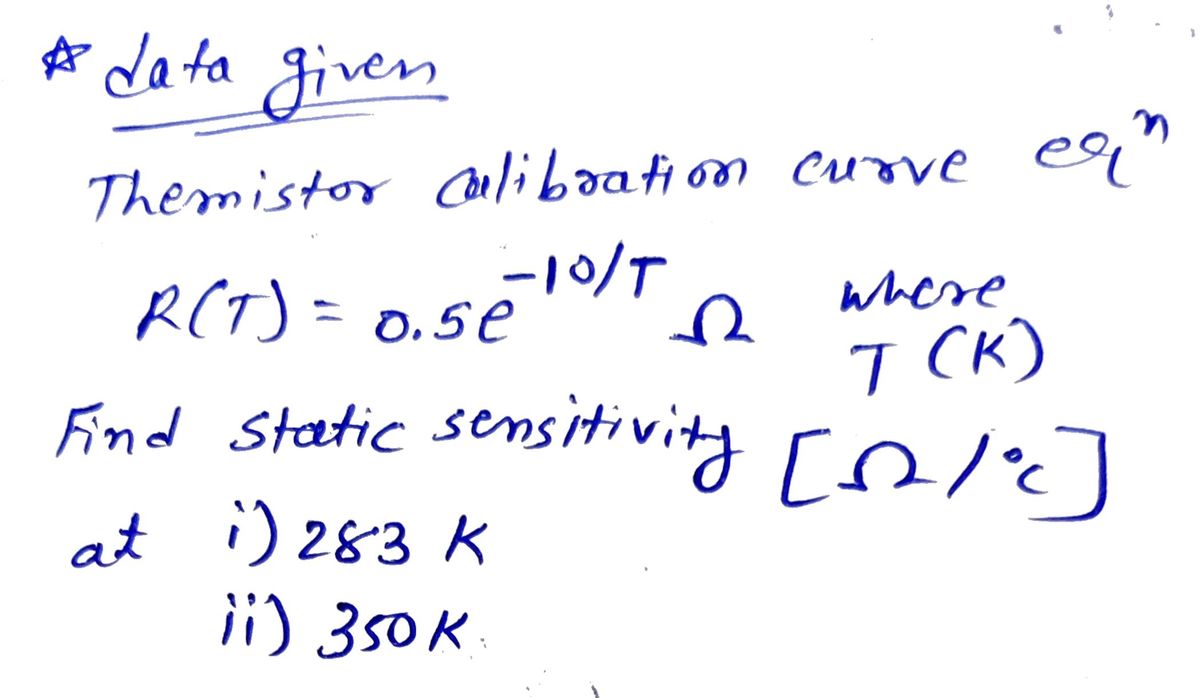 ☆ data given
Themistor calibration curve eqⁿ
R(T) = 0.5e^{-10/T} Ω where
T (K)
Find static sensitivity [Ω/°c]
at i) 283 K
ii) 350 K.